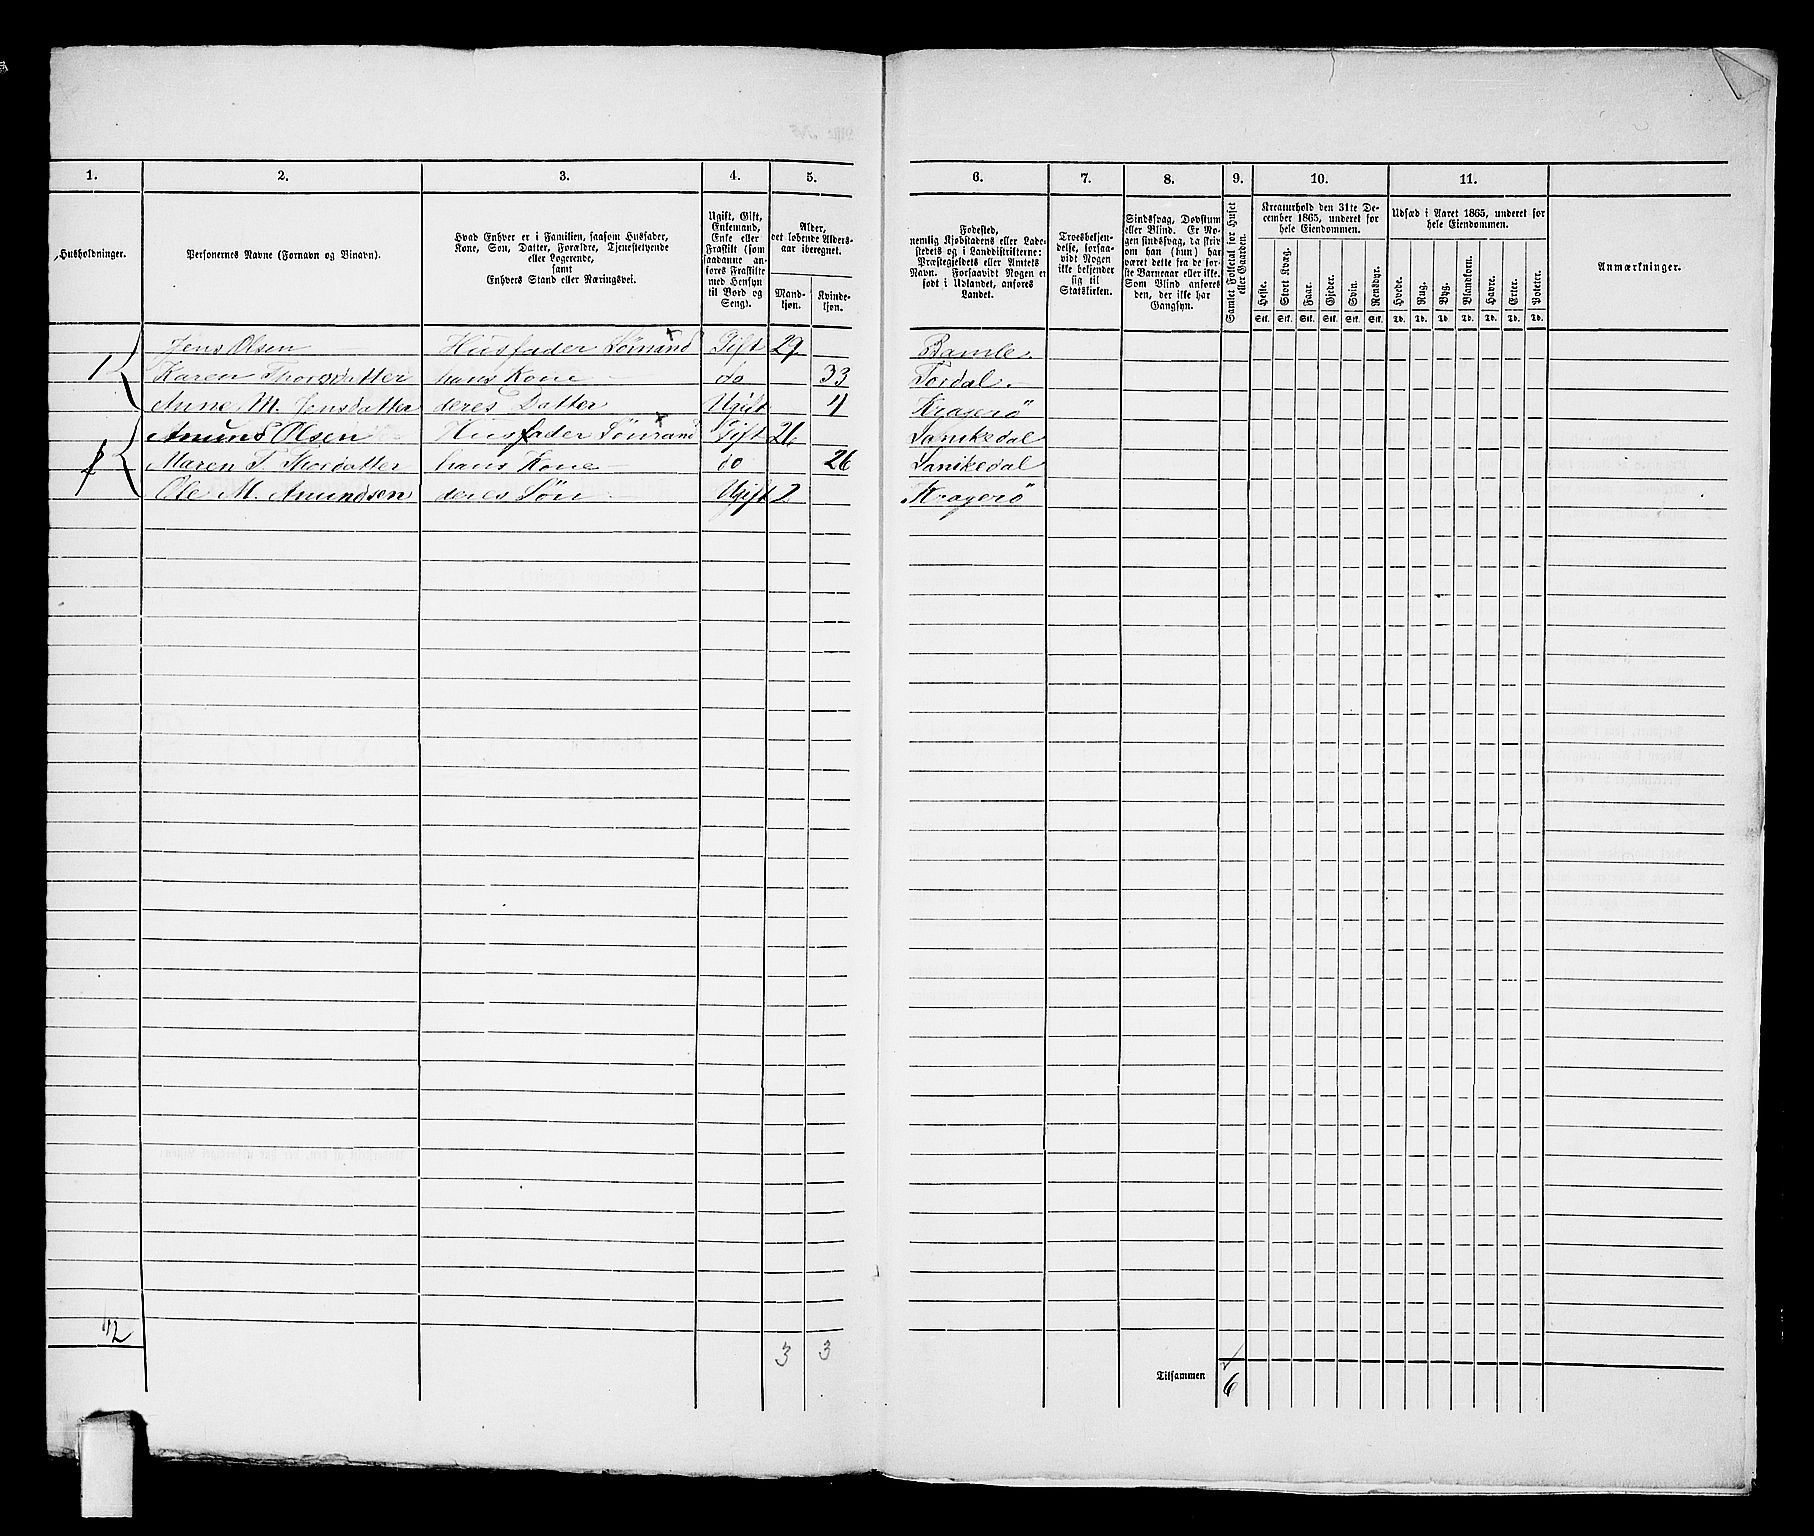 1.	2.	3.	4.	5.	6.	7.	8.	9.	10.	11.
Husholdninger.
Personernes Navne (Fornavn og Vinavn).
Hvad Enhver er i Familien, saasom Husfader, Kone, Søn, Datter, Forældre, Tjenestetyende eller Logerende, samt Enhvers Stand eller Næringsvei.
Ugift, Gift, Enkemand, Enke eller Fraskilt (som saadanne anføres Fraskilte med Hensyn til Bord og Seng).
Alder, det løbende Alders-aar iberegnet.
Mandkjøn.	Kvindekjøn.
Fødested, nemlig Kjøbstadens eller Ladestedets og i Landdistrikterne: Præstegjeldets eller Amtets Navn. Forsaavidt Nogen er født i Udlandet, anføres Landet.
Troesbekjendelse, forsaavidt Nogen ikke bekjender sig til Statskirken.
Sindssvag, Døvstum eller Blind. Er Nogen sindssvag, da skriv om han (hun) har været dette fra de første Barneaar eller ikke. Som Blind anføres den, der ikke har Gangsyn.
Samlet Folketal for Huset eller Gaarden.
Kreaturhold den 31te December 1865, underet for hele Eiendommen.
Heste.	Stort Kvæg.	Faar.	Gjeder.	Svin.	Rensdyr.
Stk.	Stk.	Stk.	Stk.	Stk.	Stk.
Udsæd i Aaret 1865, underet for hele Eiendommen.
Hvede.	Rug.	Byg.	Blandkorn.	Havre.	Erter.	Poteter.
Td.	Td.	Td.	Td.	Td.	Td.	Td.
Anmærkninger.
1	Jens Olsen	Husfader Sømand	Gift	29		Bamle
Karen Thorsdatter	hans Kone	do		33	Tordal
Anne M. Jensdatter	deres Datter	Ugift		4	Kragerö
2	Amund Olsen	Husfader Sömand	Gift	26		Sanikedal
Maren T. Thordatter	hans Kone	do		26	Sanikedal
Ole M. Amundsen	deres Sön	Ugift	2		Kragerö
3	3
Tilsammen	6